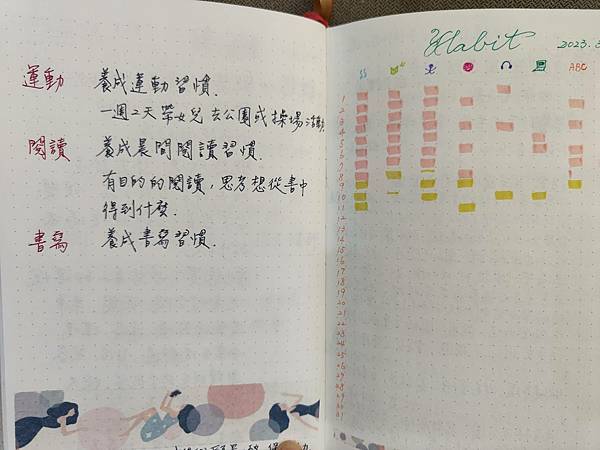 運動 養成運動習慣.
一週2天帶女兒去公園或操場
閱讀 養成晨間閱讀習慣.
有目的的閱讀,思考想從書中
得到什麼.
書寫 養成書寫習慣.
Habit 2023.
ABC
1
2
3
4
5
6
7
8
9
10
11
12
13
14
15
16
17
18
19
20
21
22
23
24
25
26
27
28
29
30
31